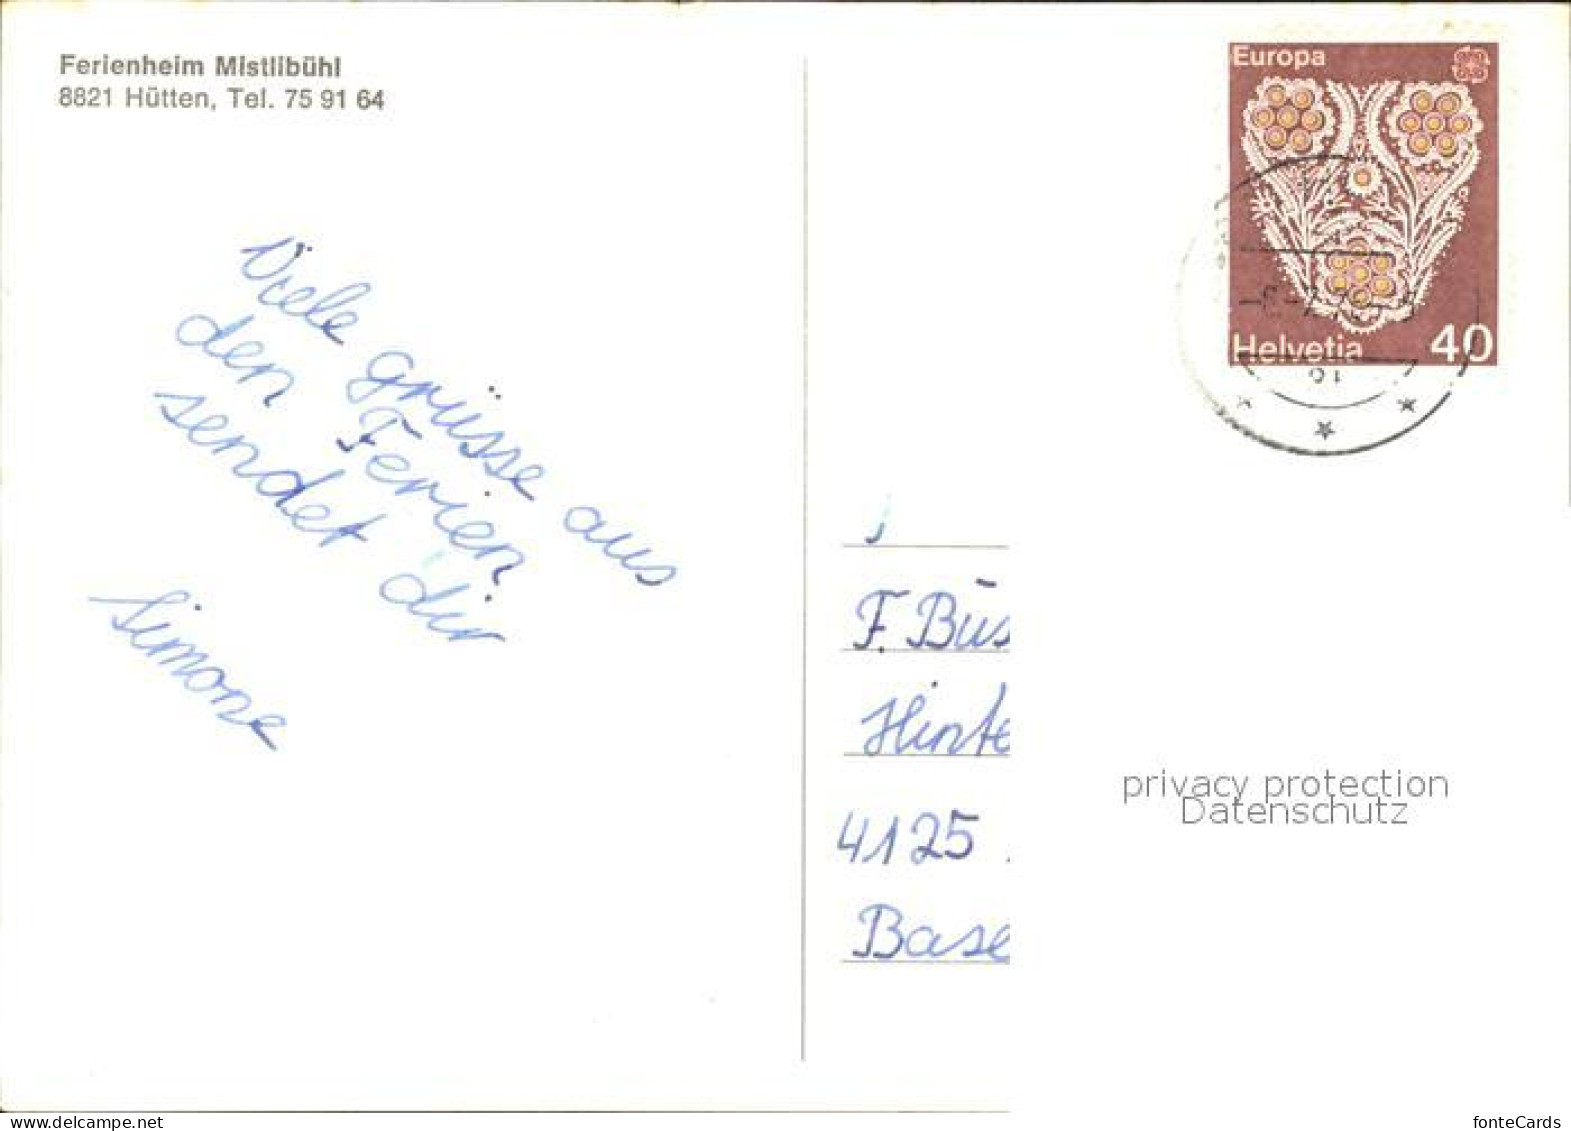 Ferienheim Mistlibühl
8821 Hütten, Tel. 75 91 64
Viele grüsse aus
den Ferien
sendet dir
Simone
Europa
Helvetia 40
F. Büs
Hinte
4125
Base
privacy protection
Datenschutz
www.delcampe.net
fonteCards